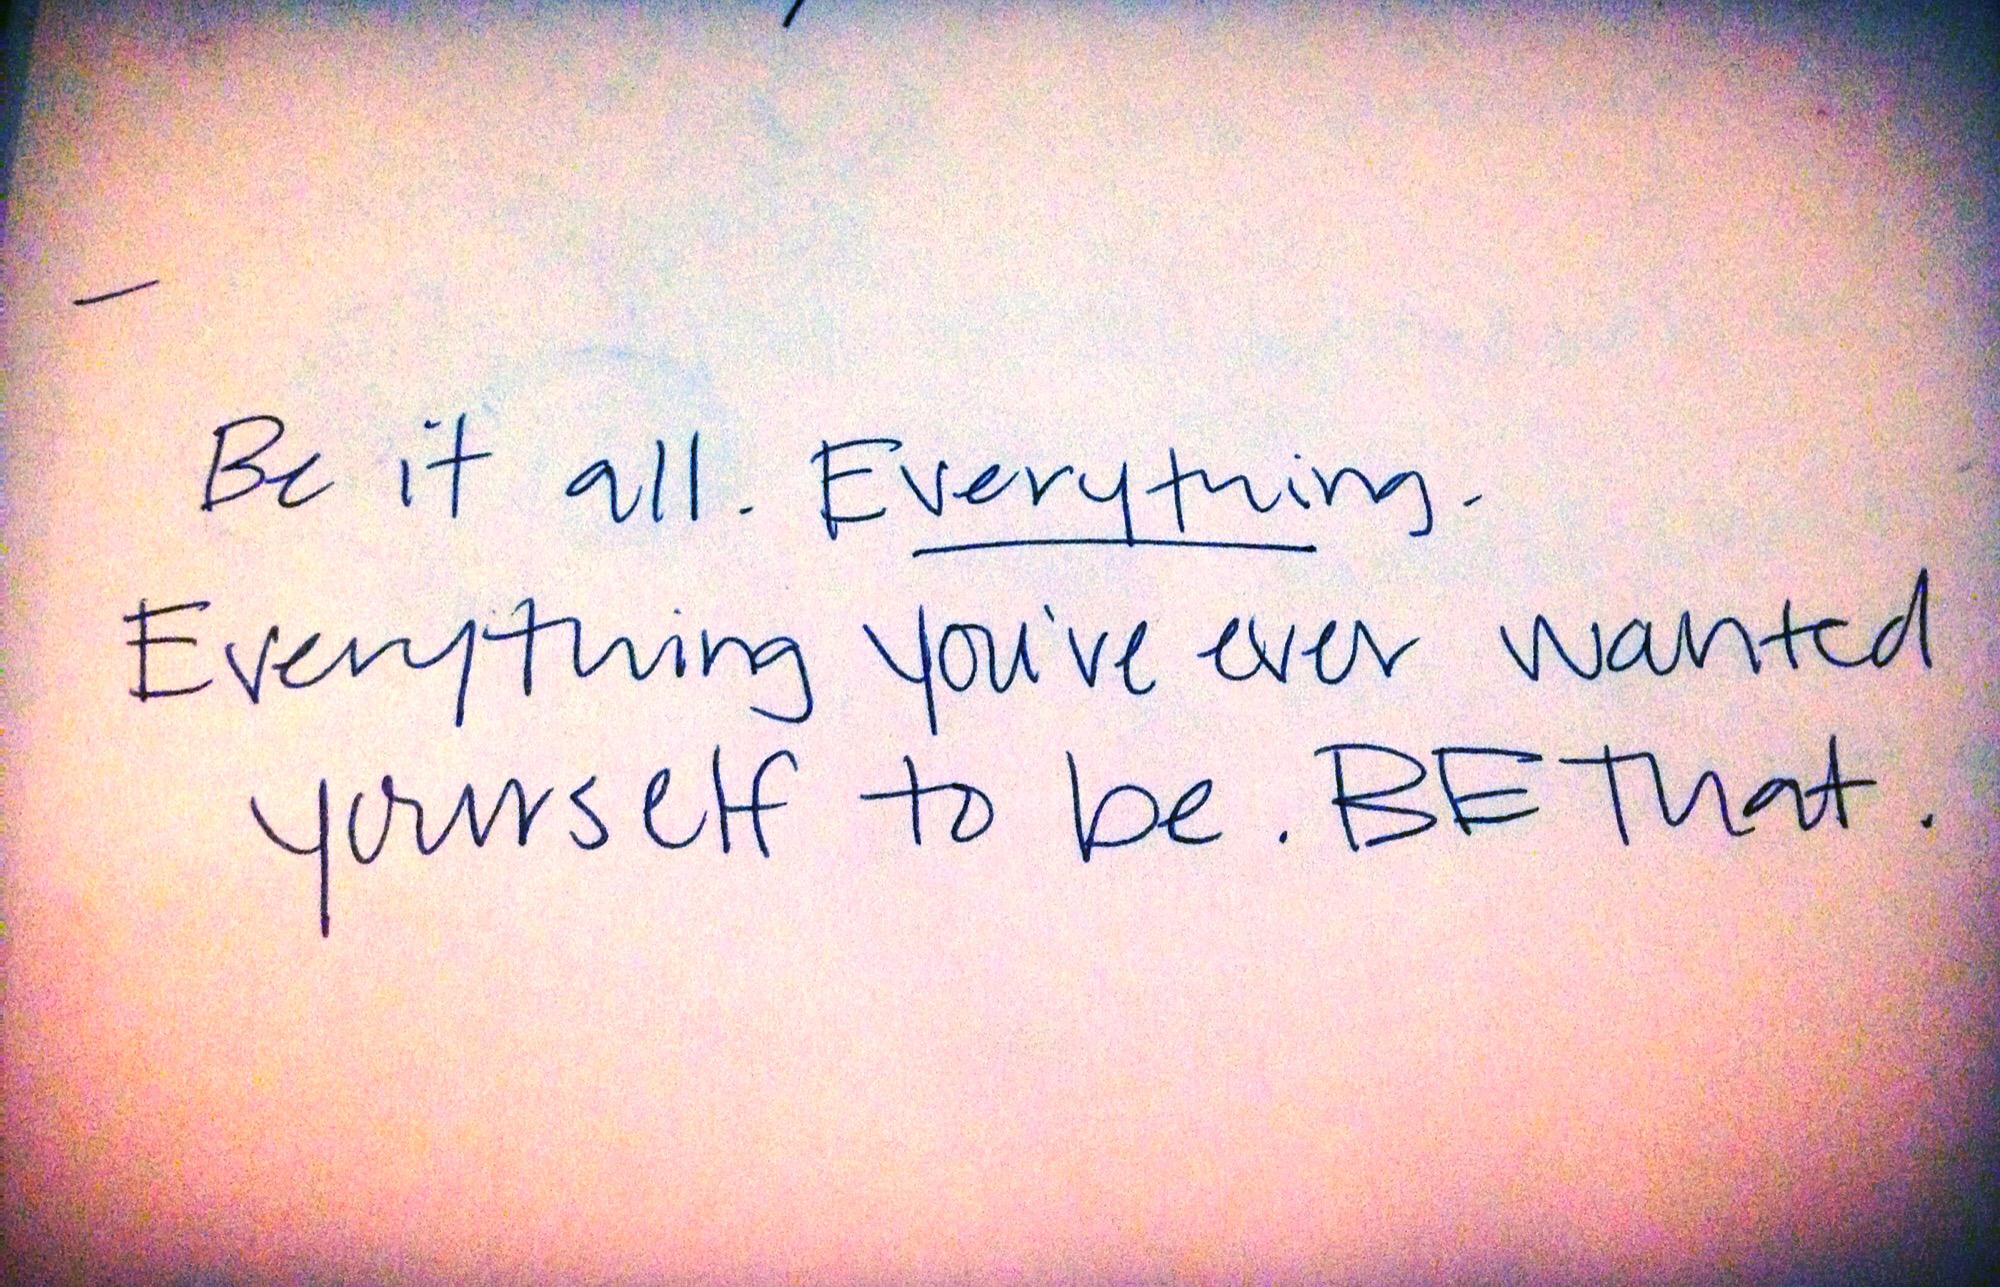 Be it all. Everything.
Everything you've ever wanted
yourself to be. BE That.